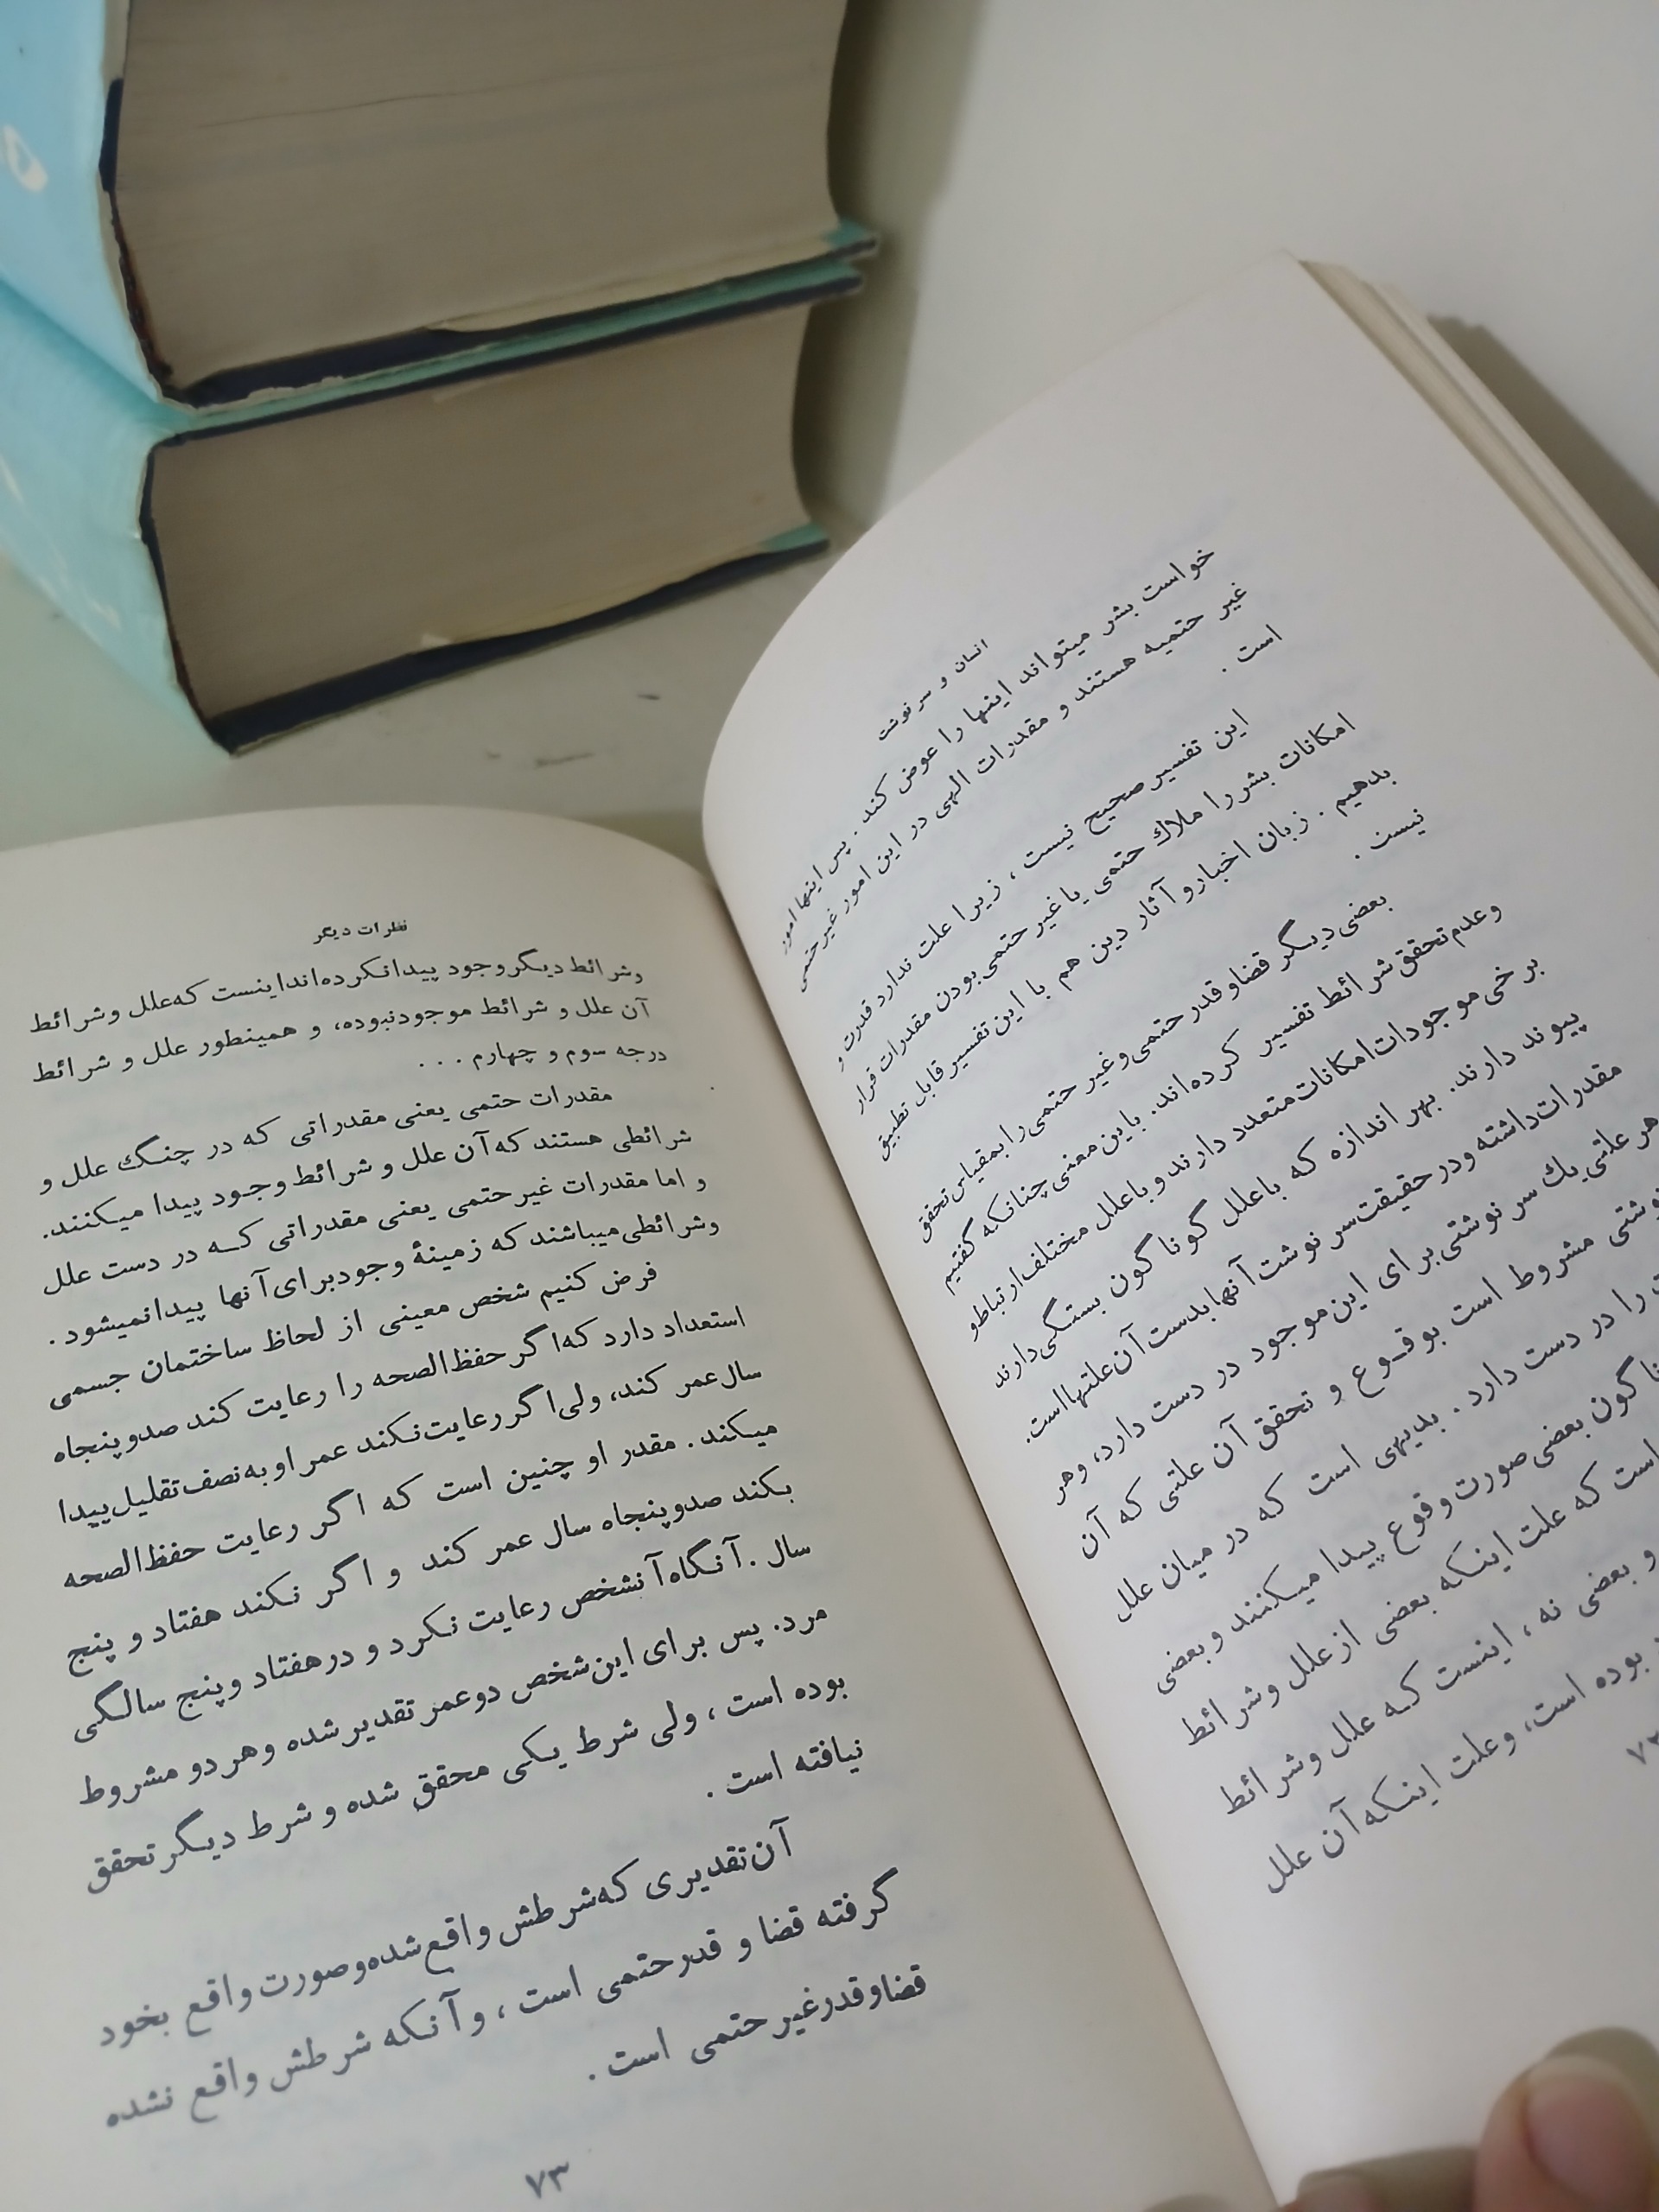 انسان و سرنوشت
خواست بشر میتواند اینها را عوض کند . پس اینها امور
غیر حتمیه هستند و مقدرات الهی در این امور غیرحتمی
است .
این تفسیر صحیح نیست ، زیرا علت ندارد قدرت و
امکانات بشر را ملاك حتمی یا غیر حتمی بودن مقدرات قرار
بدهیم . زبان اخبار و آثار دین هم با این تفسیر قابل تطبیق
نیست .
بعضی دیگر قضا و قدر حتمی و غیر حتمی را بمقیاس تحقق
وعدم تحقق شرائط تفسیر کرده‌اند. باین معنی چنانکه گفتیم
برخی موجودات امکانات متعدد دارند و با علل مختلف ارتباط و
پیوند دارند. بهر اندازه که با علل گوناگون بستگی دارند
مقدرات داشته و در حقیقت سرنوشت آنها بدست آن علتها است.
هر علتی یك سرنوشتی برای این موجود در دست دارد، وهر
مشروط است بوقـوع و تحقق آن علتی که آن
را در دست دارد. بدیهی است که در میان علل
بعضی صورت وقوع پیدا میکنند و بعضی
است که علت اینکه بعضی از علل و شرائط
و بعضی نه ، اینست کـه علل و شرائط
بوده است، و علت اینکه آن علل
نظرات دیگر
وشرائط دیگر وجود پیدا نکرده‌اند اینست که علل و شرائط
آن علل و شرائط موجود نبوده، و همینطور علل و شرائط
درجه سوم و چهارم . . .
مقدرات حتمی یعنی مقدراتی که در چنگ علل و
شرائطی هستند که آن علل و شرائط وجـود پیدا میکنند.
و اما مقدرات غیر حتمی یعنی مقدراتی کـه در دست علل
وشرائطی میباشند که زمینهٔ وجود برای آنها پیدا نمیشود .
فرض کنیم شخص معینی از لحاظ ساختمان جسمی
استعداد دارد که اگر حفظ‌الصحه را رعایت کند صدو پنجاه
سال عمر کند، ولی اگر رعایت نکند عمر او به نصف تقلیل پیدا
میکند . مقدر او چنین است که اگر رعایت حفظ‌الصحه
بکند صدو پنجاه سال عمر کند و اگر نکند هفتاد و پنج
سال . آنگاه آنشخص رعایت نکرد و در هفتاد و پنج سالگی
مرد. پس برای این شخص دو عمر تقدیر شده و هر دو مشروط
بوده است ، ولی شرط یکی محقق شده و شرط دیگر تحقق
نیافته است .
آن تقدیری که شرطش واقع شده و صورت واقع بخود
گرفته قضا و قدر حتمی است ، و آنکه شرطش واقع نشده
قضا و قدر غیر حتمی است .
۷۳